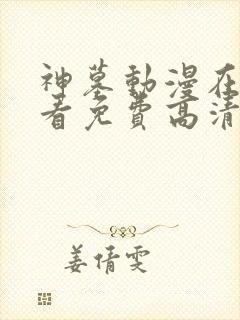 神墓動漫在
看免費高清
姜倩雯